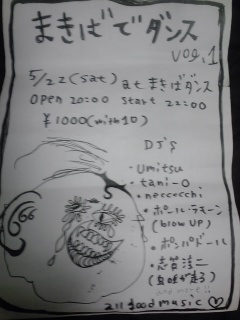 まきばでダンス
vog.1
5/22(sat) at まきばダンス
OPEN 20:00 Start 22:00
¥1000(with1D)
DJ's
・umitsu
・tani-O
・neccecchi
・ポール・テモーン
(blow UP)
・ポンパドール
・志賀淳二
and more!!
all good music
666